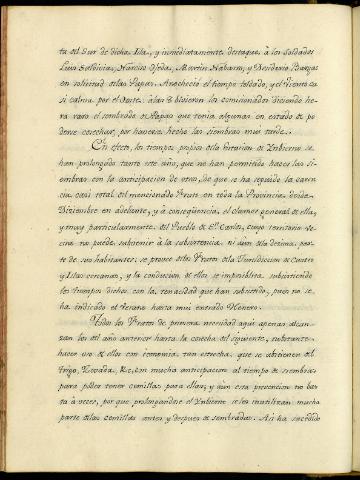 ta del Sur de dicha Isla, y inmediatamente destaque à los Soldados
Luis Saldivia, Narciso Ojeda, Martin Nabarro, y Desiderio Bargas
en solicitud de las Papas. Anochecio el tiempo toldado, y el viento ca
si calma por el Oeste. à las 8 bolvieron los comicionados diciendo he
ra raro el sembrado de Papas que tenia algunas en estado de po
derse cosechar, por haverse hecho las siembras muy tarde.
En efecto, los tiempos propios de la Estacion de Ynbierno se
han prolongado tanto este año, que no han permitido haces las sie
mbras con la anticipacion de otros, de que se ha seguido la caren
cia casi total del mencionado Fruto en toda la Provincia, desde
Diziembre en adelante, y à conseqüencia, el clamor general de ella,
y muy particularmente del Pueblo de Sn. Carlos, cuyo territorio ve
cino no puede subvenir à la subsistencia ni aun de la decima par
te de sus habitantes; se provee de los Frutos de la Jurisdiccion de Castro
y Islas cercanas, y la conducion de ellos se imposibilita, subsistiendo
los tiempos dichos con la tenacidad que han subsistido, pues no se
ha indicado el Verano hasta muy entrado Henero.
Todos los Frutos de primera necesidad aqui apenas alcan
zan los del año anterior hasta la cosecha del siguiente, sujetante
haces uso de ellos con economia tan estrecha, que se abstienen del
Trigo, Zevada, &c. con mucha anticipacion al tiempo de siembras
para poder tener semillas para ellas; y aun esta prevencion no bas
ta à veces, por que prolongandose el Ynbierno se les inutilizan mucha
parte de las semillas antes y despues de sembradas. Asi ha sucedido